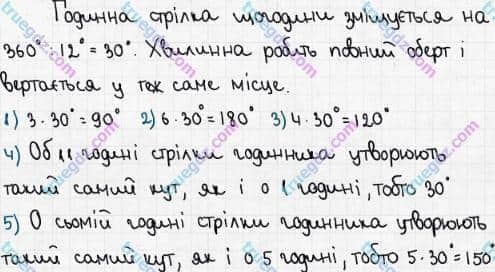 Годинна стрілка щогодини зміщується на
360° : 12° = 30°. Хвилинна робить повний оберт і
вертається у теж саме місце.
1) 3 · 30° = 90° 2) 6 · 30° = 180° 3) 4 · 30° = 120°
4) Об 11 годині стрілки годинника утворюють
такий самий кут, як і о 1 годині, тобто 30°
5) О сьомій годині стрілки годинника утворюють
такий самий кут, як і о 5 годині, тобто 5 · 30° = 150